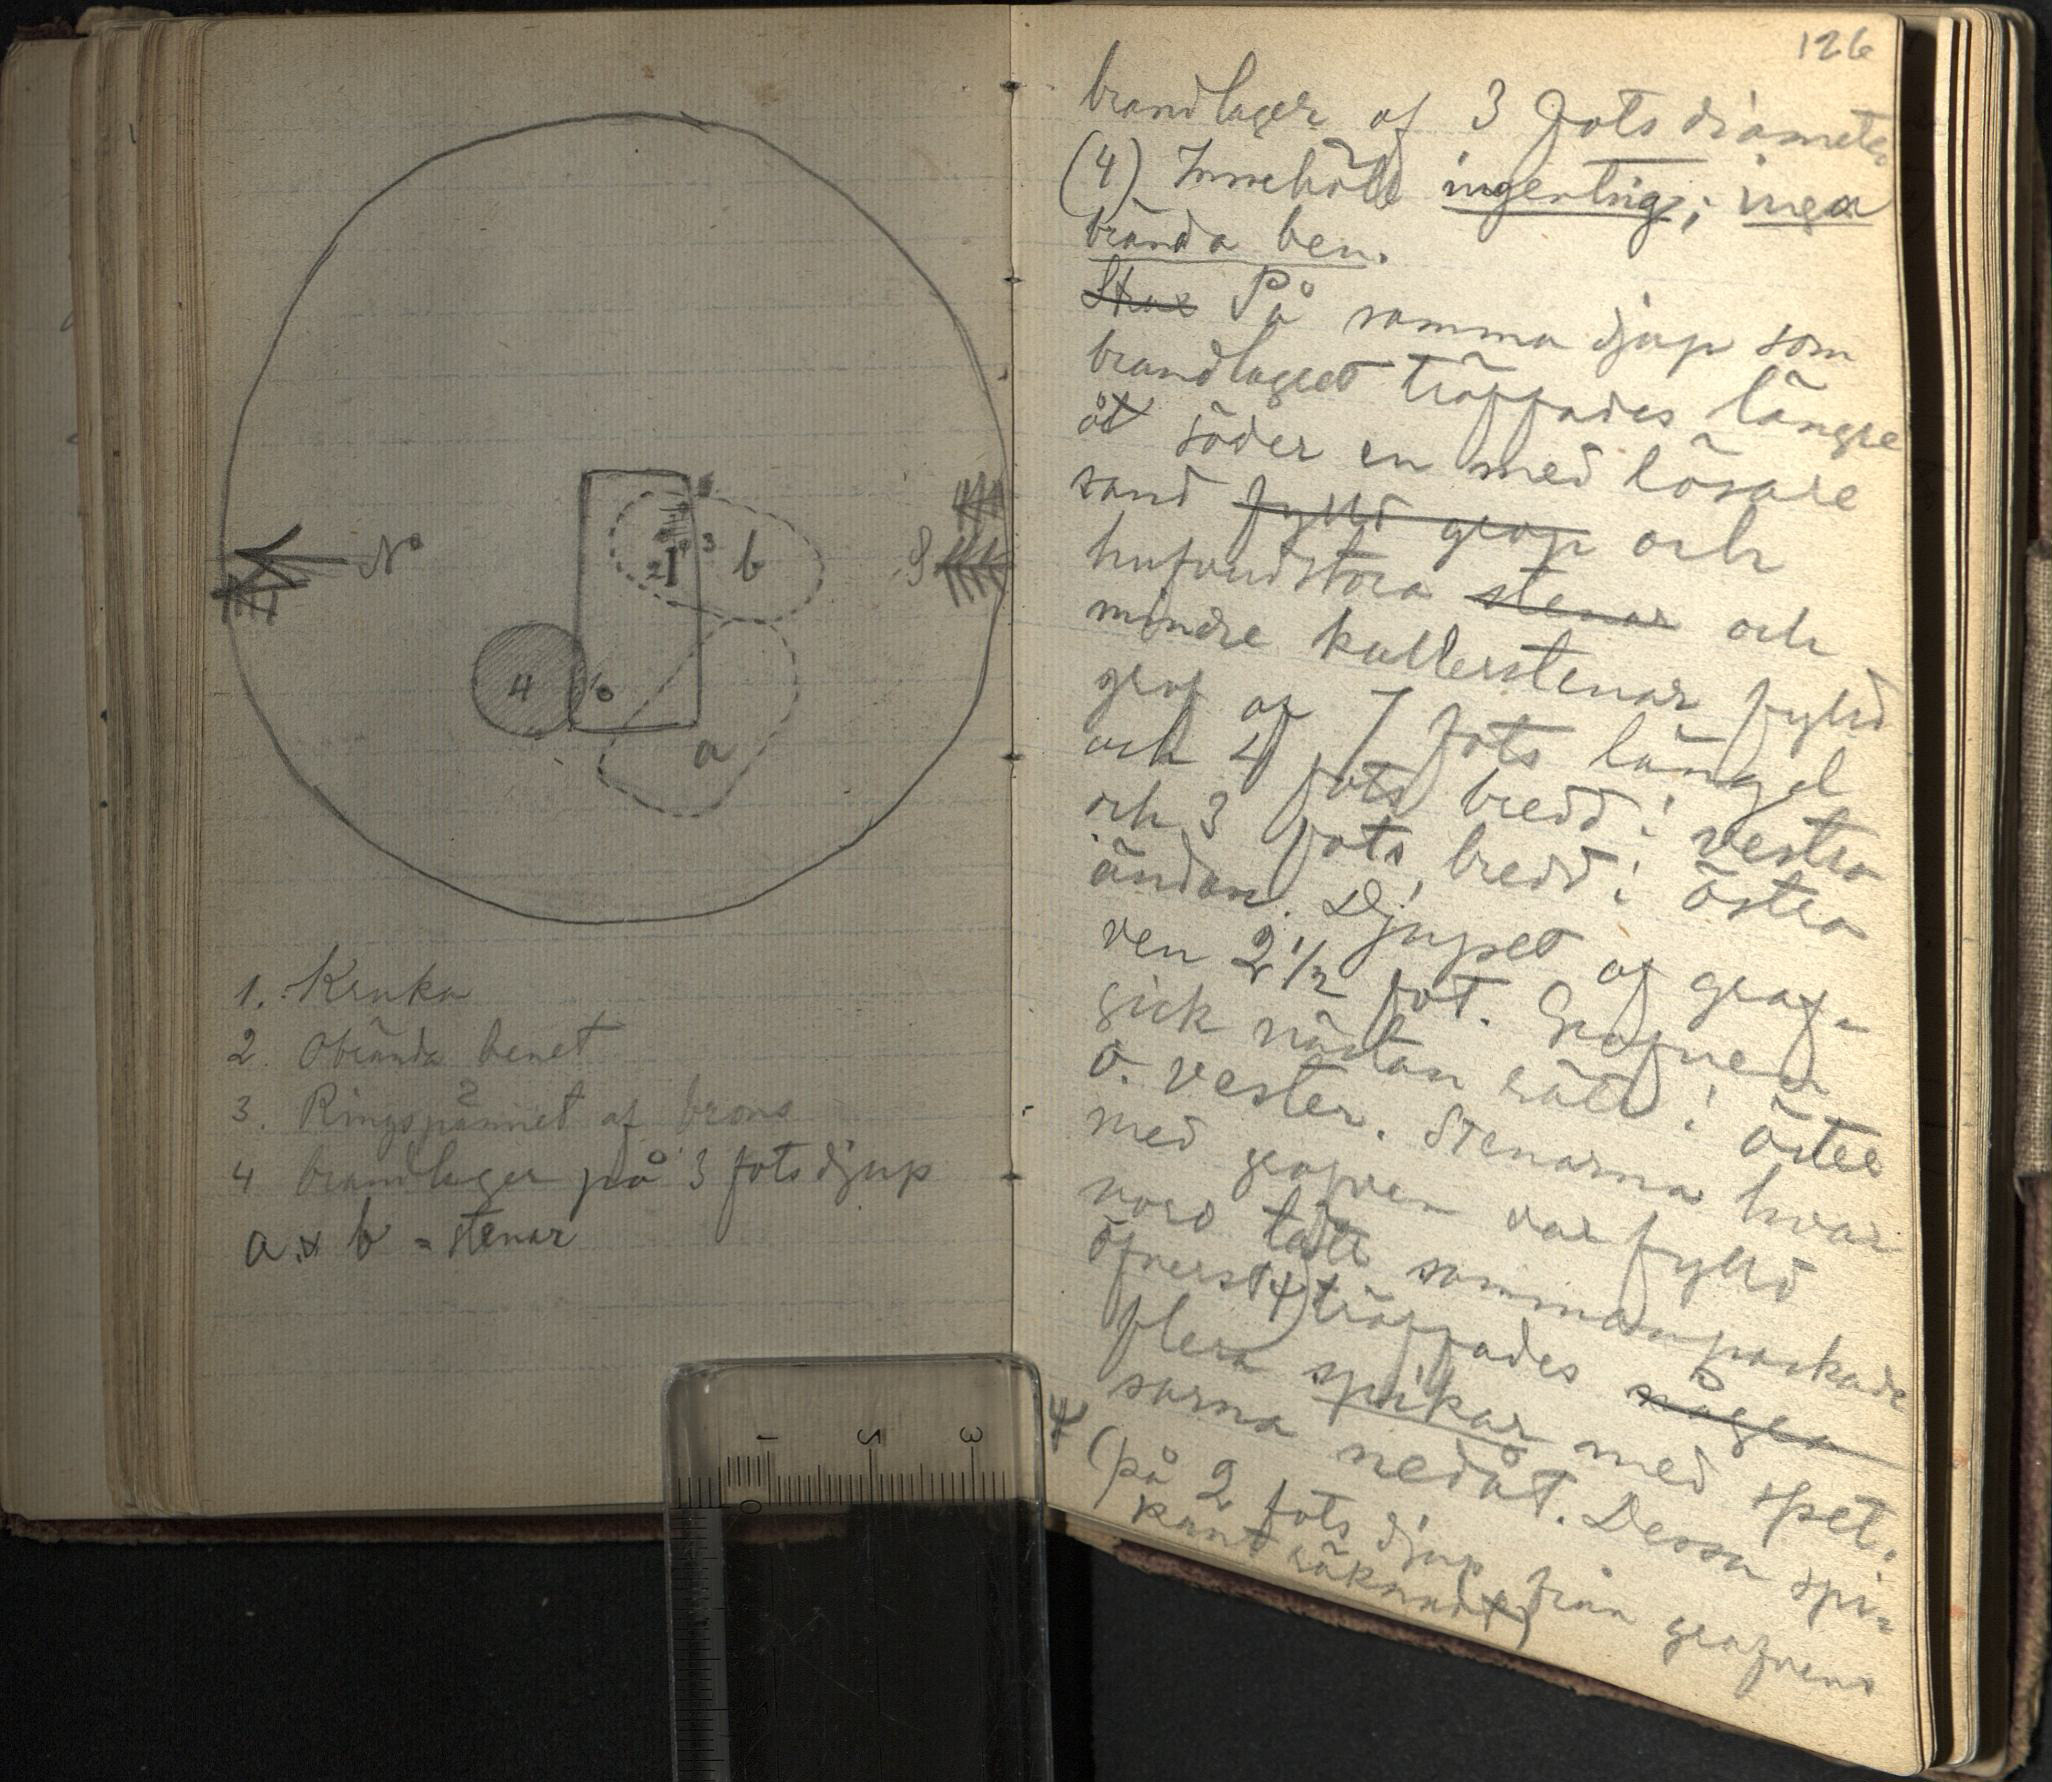 N
S
1
2
3
b
4
6
a
1. Kruka
2. Obrända benet
3. Ringspännet af brons
4 brandlager på 3 fots djup
a. x b = stenar
126
brandlager af 3 fots diameter
(4) Innehöll ingenting; inga
brända ben.
Strax På samma djup som
brandlagret träffades längre
åt söder en med lösare
sand fylld grop och
hufvudstora stenar och
mindre kullerstenar fylld
graf af 7 fots längd
och 4 fots bredd i vestra
och 3 fots bredd i östra
ändan. Djupet af graf-
ven 2 1/2 fot. Grafven
gick nästan rätt i öster
o. vester. Stenarna hvar
med grafven var fylld
voro tätt sammanpackade
öfverst träffades några
flera spikar med spet-
sarna nedåt. Dessa spi-
(på 2 fots djup från grafvens
kant räknadt)
1
2
3
0